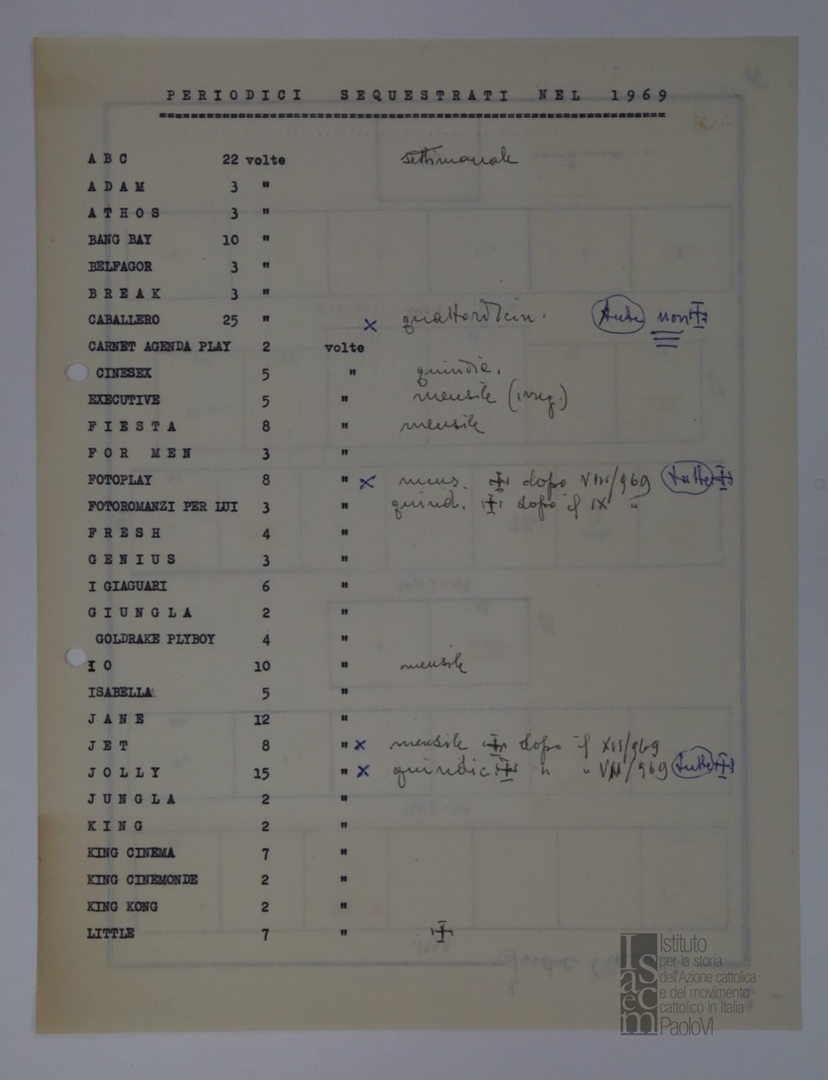 PERIODICI SEQUESTRATI NEL 1969
ABC 22 volte settimanale
ADAM 3 "
ATHOS 3 "
BANG BAY 10 "
BELFAGOR 3 "
BREAK 3 "
CABALLERO 25 " x quattordicin. non
CARNET AGENDA PLAY 2 volte
CINESEX 5 " quindic.
EXECUTIVE 5 " mensile (irreg.)
FIESTA 8 " mensile
FOR MEN 3 "
FOTOPLAY 8 " x mens. dopo VIII/969 tutte
FOTOROMANZI PER LUI 3 " quind. dopo il IX "
FRESH 4 "
GENIUS 3 "
I GIAGUARI 6 "
GIUNGLA 2 "
GOLDRAKE PLYBOY 4 "
IO 10 " mensile
ISABELLA 5 "
JANE 12 "
JET 8 " x mensile dopo il XII/969
JOLLY 15 " x quindic. " " VIII/969 tutte
JUNGLA 2 "
KING 2 "
KING CINEMA 7 "
KING CINEMONDE 2 "
KING KONG 2 "
LITTLE 7 "
Isacem
Istituto
per la storia
dell'Azione cattolica
e del movimento
cattolico in Italia
PaoloVI